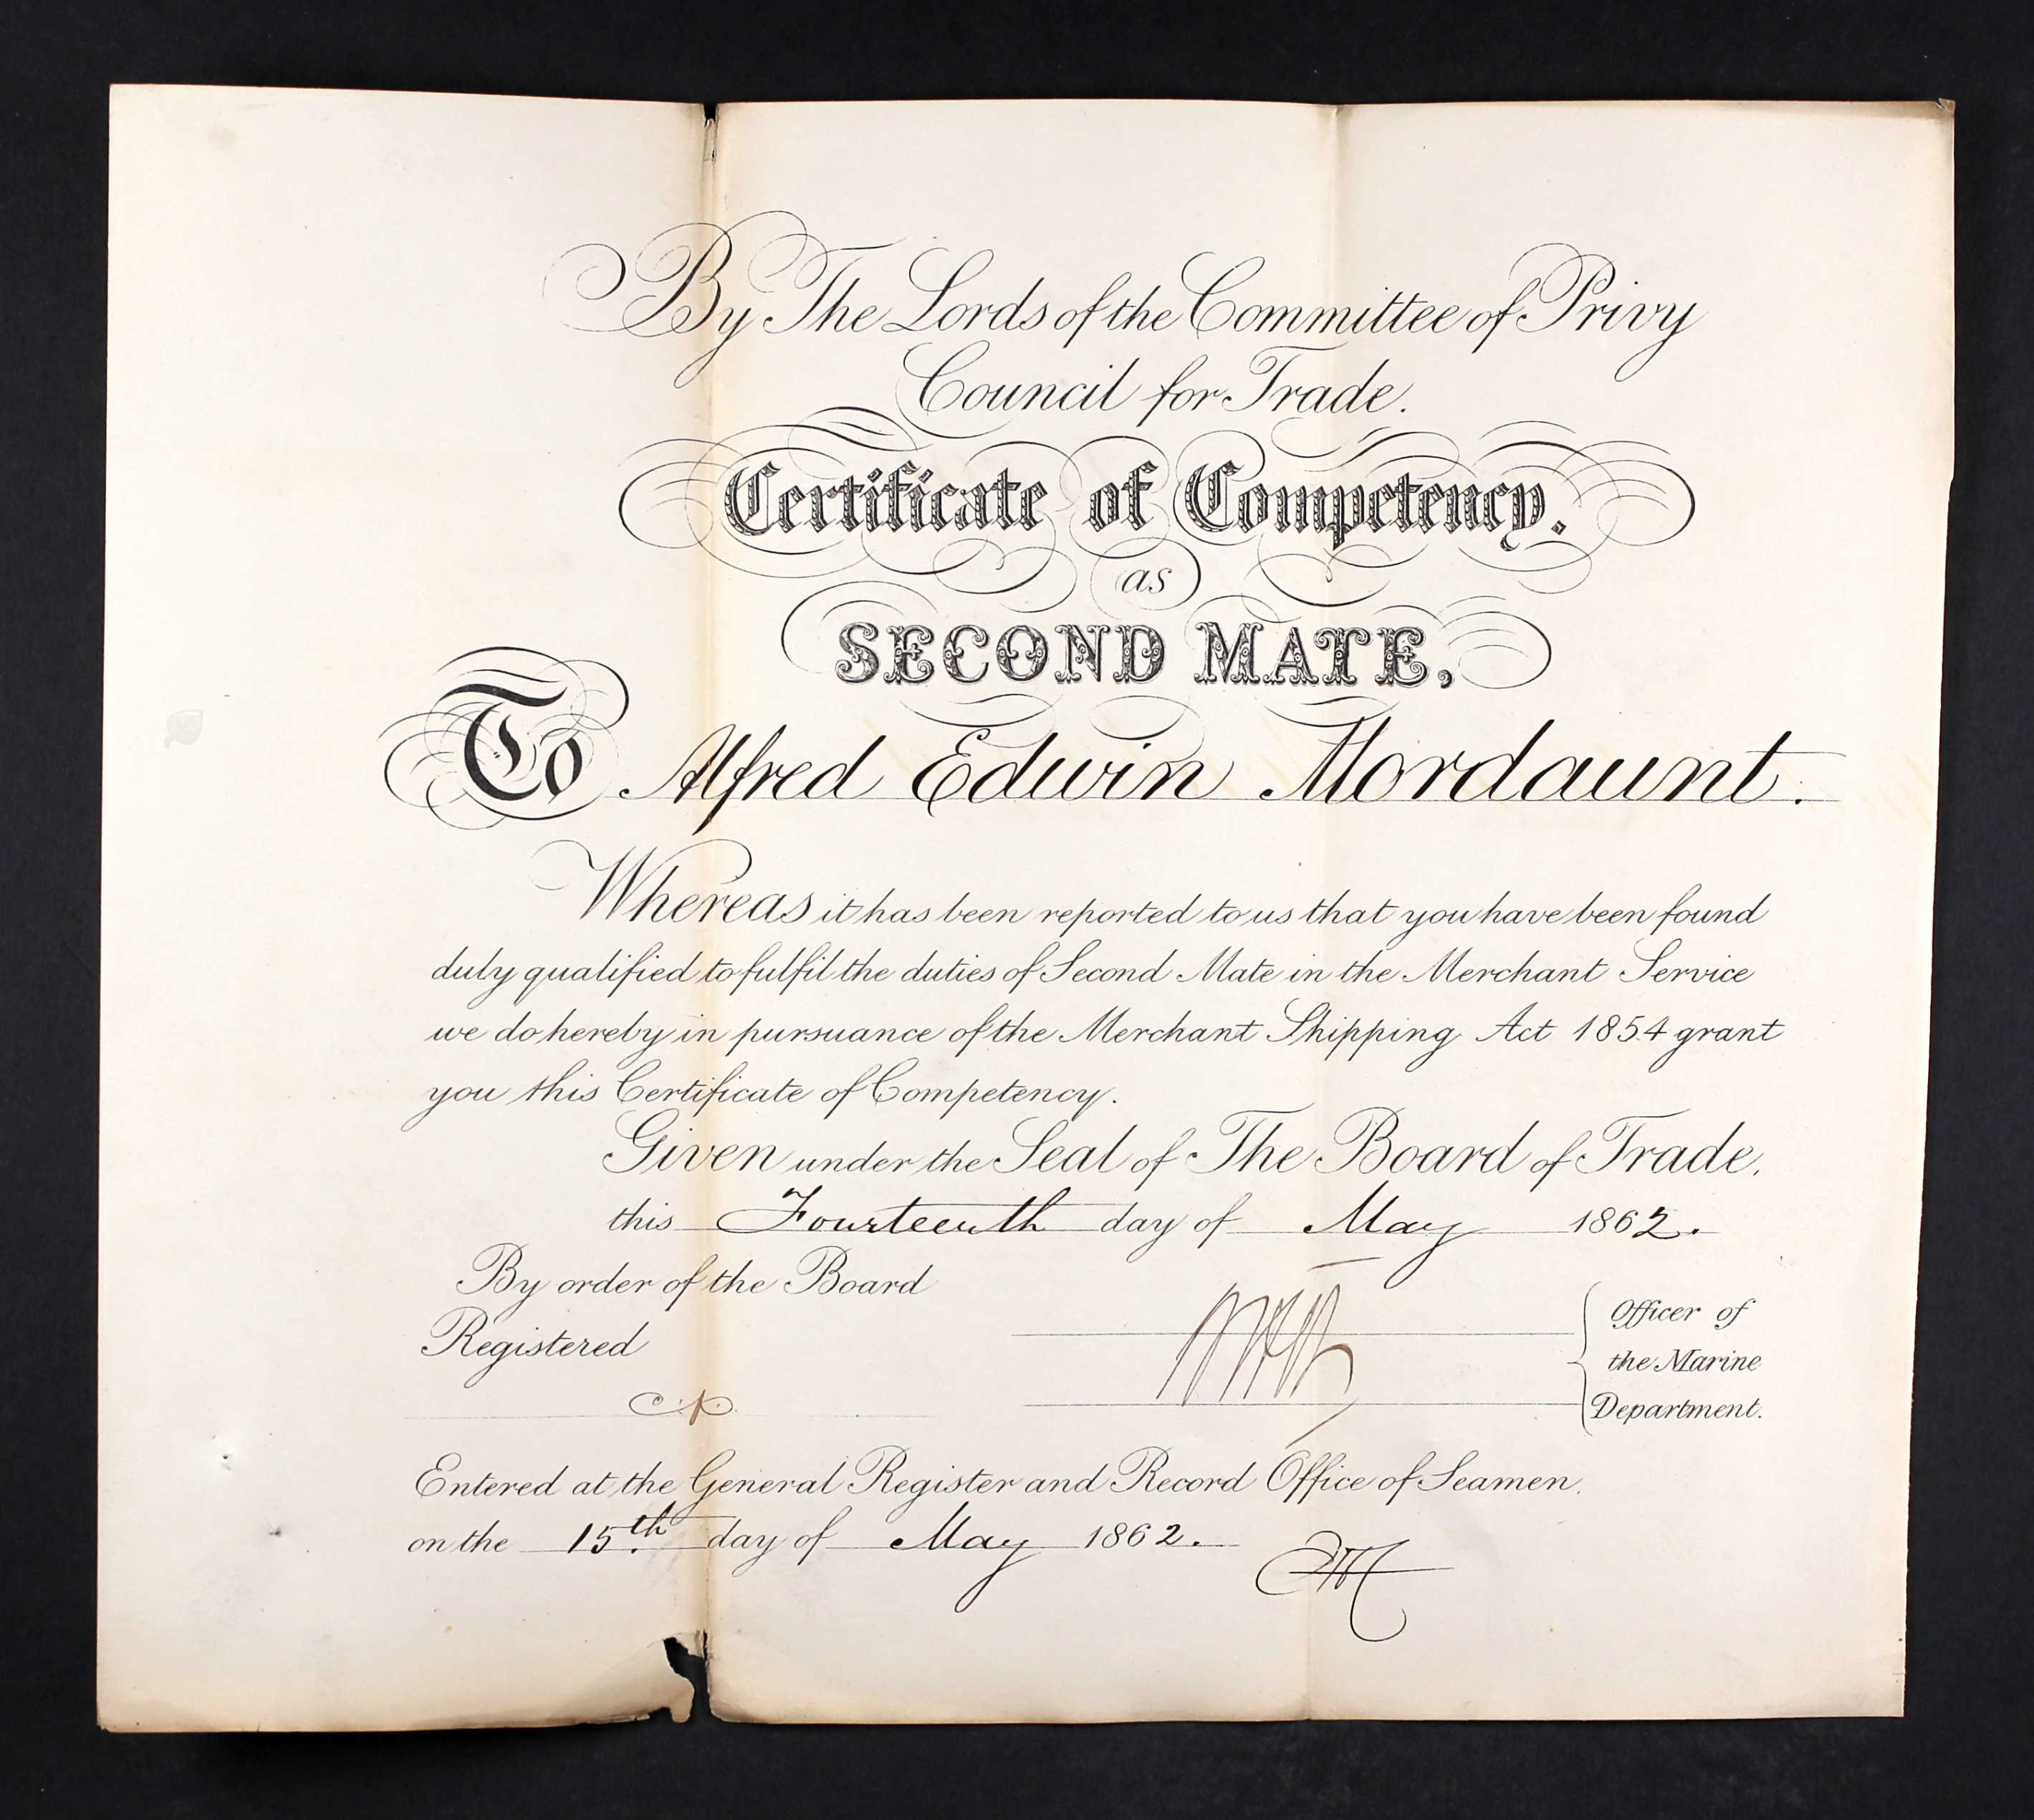 By The Lords of the Committee of Privy
Council for Trade.
Certificate of Competency.
as
SECOND MATE,
To Alfred Edwin Mordaunt.
Whereas it has been reported to us that you have been found
duly qualified to fulfil the duties of Second Mate in the Merchant Service
we do hereby in pursuance of the Merchant Shipping Act 1854 grant
you this Certificate of Competency.
Given under the Seal of The Board of Trade.
this Fourteenth day of May 1862.
By order of the Board
Registered
Officer of
the Marine
Department.
Entered at the General Register and Record Office of Seamen.
on the 15th day of May 1862.